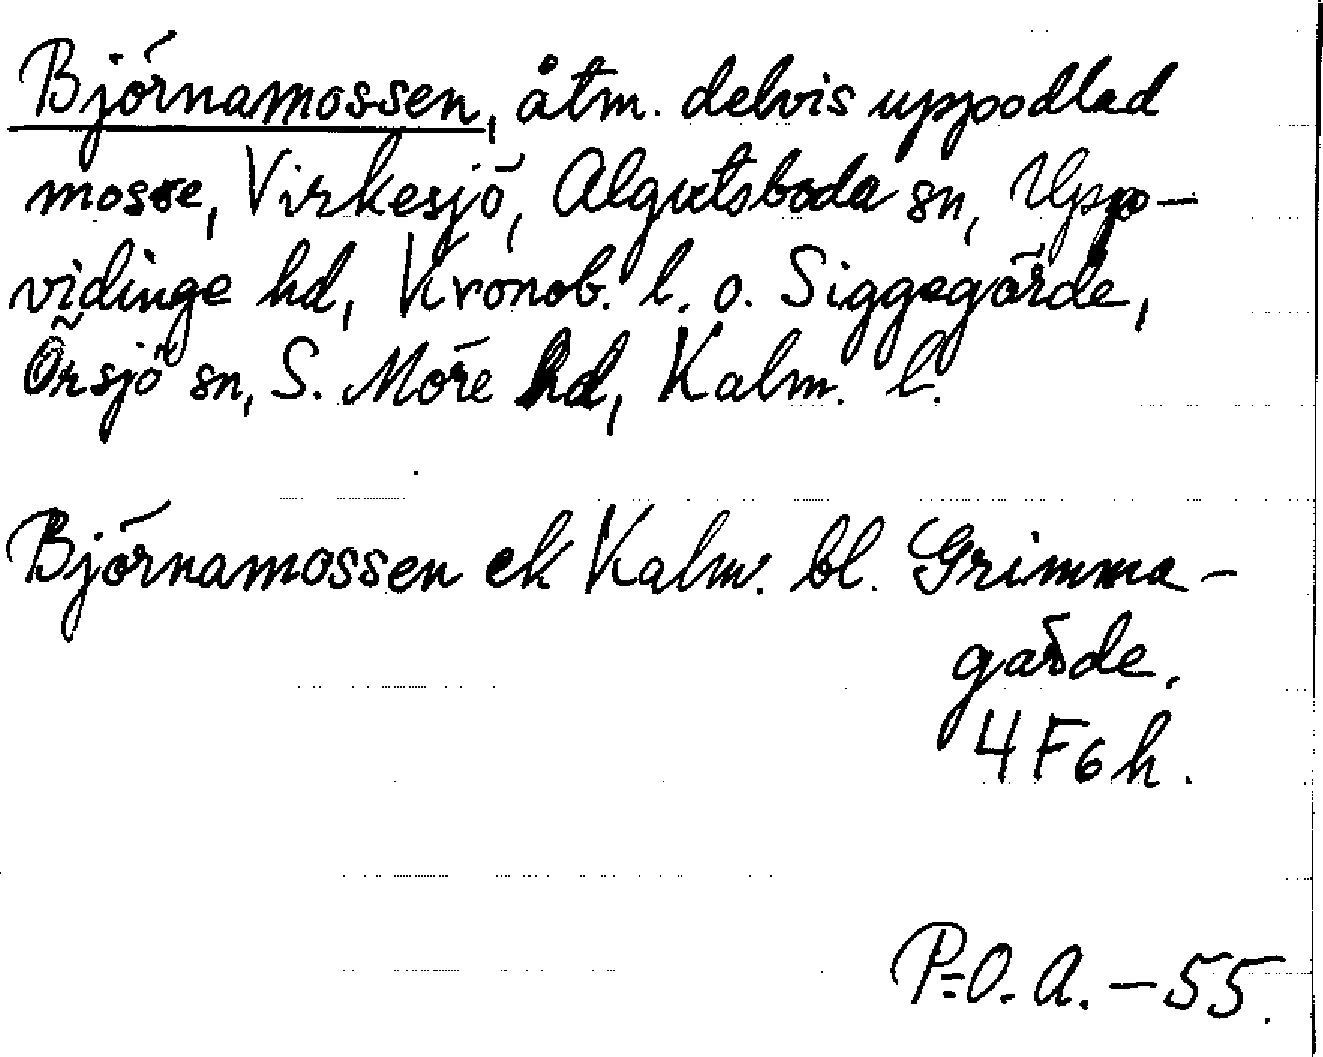 Björnamossen, åtm. delvis uppodlad
mosse, Virkesjö, Algutsboda sn, Upp-
vidinge hd, Kronob. l. o. Siggegärde,
Örsjö sn, S. Möre hd, Kalm. l.
Björnamossen ek Kalm. bl. Grimma-
gärde.
4 F 6 h.
P-O. A. – 55.